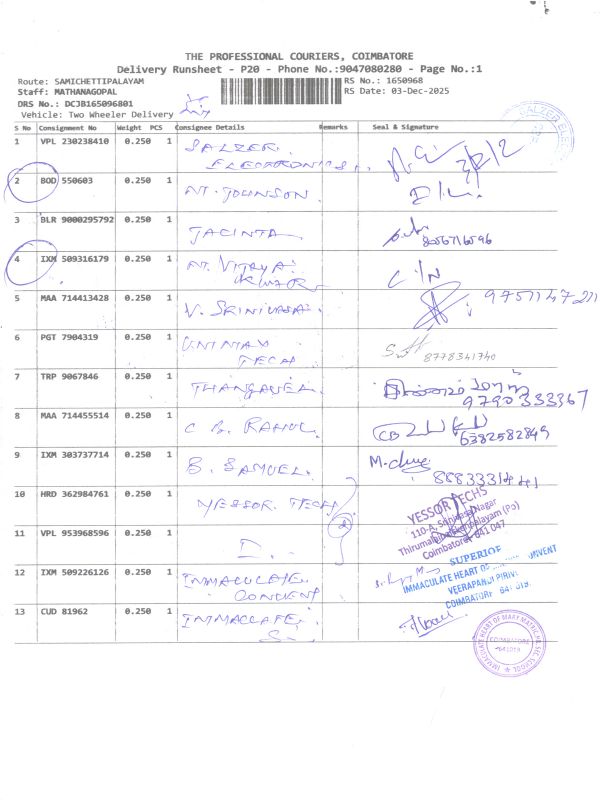 THE PROFESSIONAL COURIERS, COIMBATORE
Delivery Runsheet - P20 - Phone No.:9047080280 - Page No.:1
Route: SAMICHETTIPALAYAM RS No.: 1650968
Staff: MATHANAGOPAL RS Date: 03-Dec-2025
DRS No.: DCJB165096801
Vehicle: Two Wheeler Delivery
SALZER ELE
S No Consignment No Weight PCS Consignee Details Remarks Seal & Signature
1 VPL 230238410 0.250 1 SALZER
ELECTRONICS
2 BOD 550603 0.250 1 NT. JOHNSON
3 BLR 9000295792 0.250 1 JACINTA
8056716596
4 IXM 509316179 0.250 1 NT. VIJAYA
KUMAR C/N
5 MAA 714413428 0.250 1 V. SRINIVASA
6 PGT 7904319 0.250 1
TECH 8778341740
7 TRP 9067846 0.250 1 THANGAVEL
9790333367
8 MAA 714455514 0.250 1 C B. RAHUL
6382582849
9 IXM 303737714 0.250 1 B. SAMUEL.
10 HRD 362984761 0.250 1 YESSOR TECH
YESSOR TECHS
110-A, Srinivasa Nagar
Coimbatore 641 047
11 VPL 953968596 0.250 1
2
SUPERIOR
12 IXM 509226126 0.250 1 IMMACULATE
CONVENT
IMMACULATE HEART OF CONVENT
VEERAPANDI PIRIVU
COIMBATORE 641 019.
13 CUD 81962 0.250 1 IMMACLATE
S.
IMMACULATE HEART OF MARY MATRIC HR. SEC. SCHOOL
COIMBATORE
641019